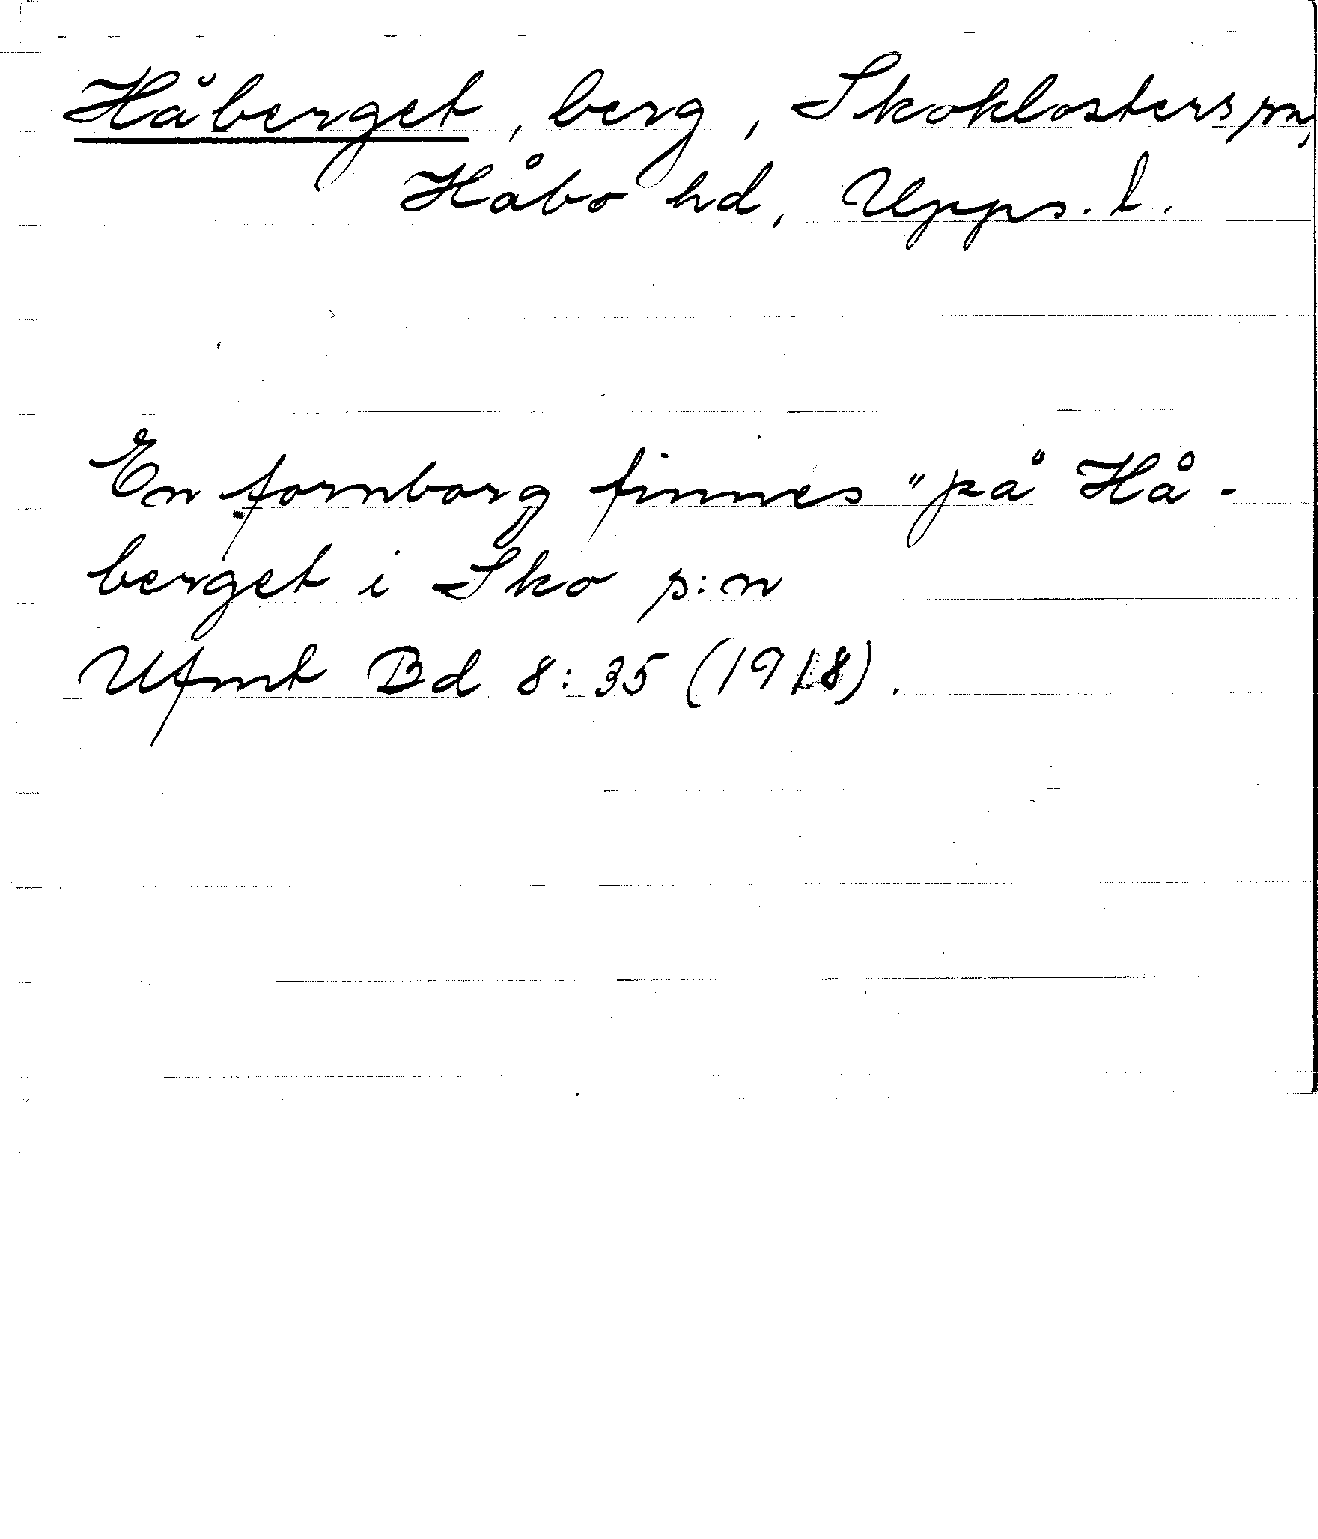 Håberget, berg, Skoklosters sn,
Håbo hd, Upps. l.
En fornborg finnes "på Hå-
berget i Sko s:n
Ufmt Bd 8:35 (1918).